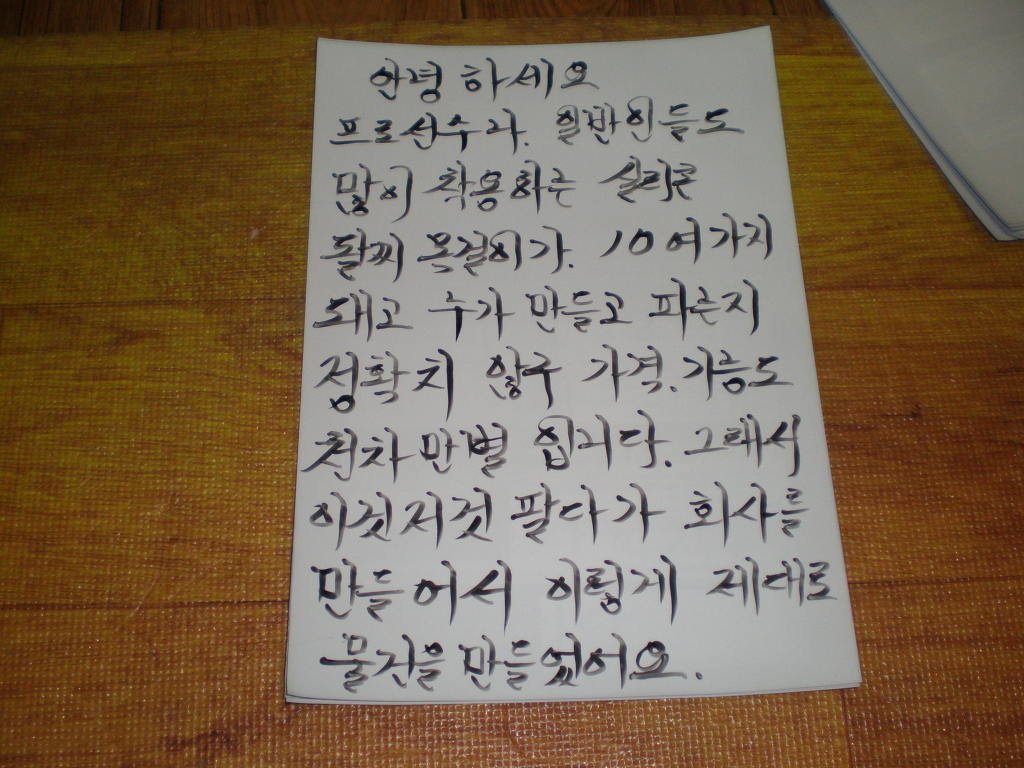 안녕 하세요
프로선수과. 일반인들도
많이 착용하는 실리콘
팔찌 목걸이가. 10여가지
돼고 누가 만들고 파는지
정확치 않구 가격.기능도
천차만별 입니다. 그래서
이것저것 팔다가 회사를
만들어서 이렇게 제대로
물건을 만들었어요.